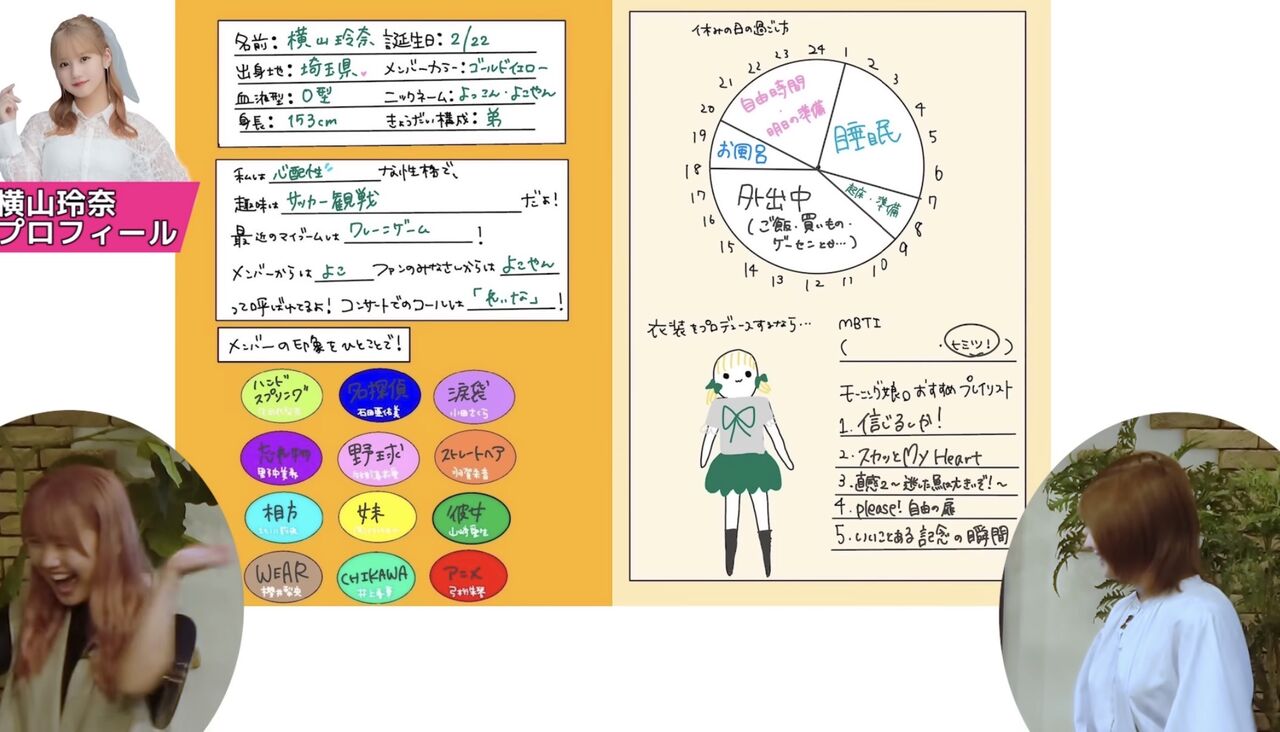 横山玲奈
プロフィール
名前: 横山玲奈 誕生日: 2/22
出身地: 埼玉県 メンバーカラー: ゴールドイエロー
血液型: O型 ニックネーム: よっこん・よこやん
身長: 153cm きょうだい構成: 弟
私は 心配性 な性格で、
趣味は サッカー観戦 だよ!
最近のマイブームは クレーンゲーム !
メンバーからは よこ ファンのみなさんからは よこやん
って呼ばれてるよ! コンサートでのコールは 「れいな」 !
メンバーの印象をひとことで!
ハンド
スプリング
名探偵
石田亜佑美
涙袋
小田さくら
野中美希
野球
ストレートヘア
羽賀朱音
相方
妹
彼女
山﨑愛生
WEAR
櫻井梨央
CHIKAWA
井上春華
アニメ
弓桁朱琴
休みの日の過ごし方
24 1 2 3 4 5 6 7 8 9 10 11 12 13 14 15 16 17 18 19 20 21 22 23
自由時間
・
明日の準備
睡眠
お風呂
起床・準備
外出中
(ご飯・買いもの・
ゲーセンとか…)
衣装をプロデュースするなら…
MBTI
( ・ヒミツ! )
モーニング娘。おすすめプレイリスト
1. 信じるしか!
2. スカッとMy Heart
3. 直感2〜逃した魚は大きいぞ!〜
4. please! 自由の扉
5. いいことある記念の瞬間